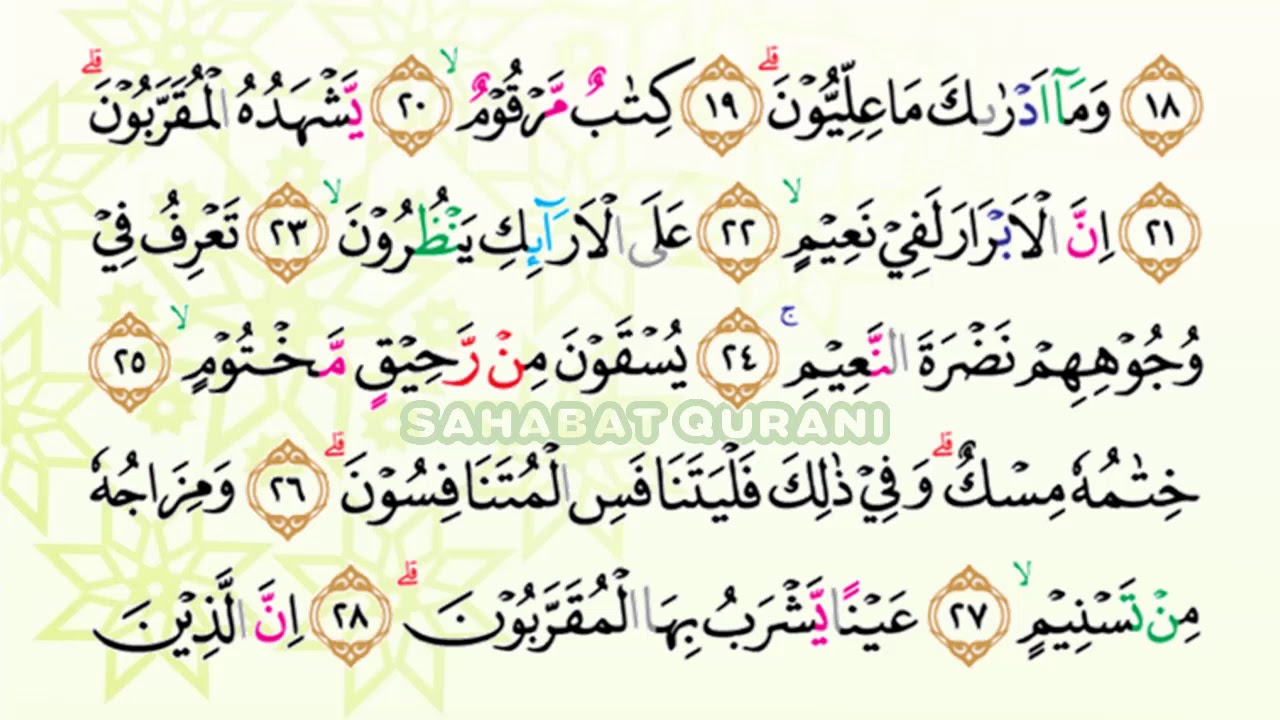 ١٨ وَمَآ اَدْرٰىكَ مَا عِلِّيُّوْنَۗ ١٩ كِتٰبٌ مَّرْقُوْمٌۙ ٢٠ يَّشْهَدُهُ الْمُقَرَّبُوْنَۗ
٢١ اِنَّ الْاَبْرَارَ لَفِيْ نَعِيْمٍۙ ٢٢ عَلَى الْاَرَاۤىِٕكِ يَنْظُرُوْنَۙ ٢٣ تَعْرِفُ فِيْ
وُجُوْهِهِمْ نَضْرَةَ النَّعِيْمِۚ ٢٤ يُسْقَوْنَ مِنْ رَّحِيْقٍ مَّخْتُوْمٍۙ ٢٥
SAHABAT QURANI
خِتٰمُهٗ مِسْكٌ ۗوَفِيْ ذٰلِكَ فَلْيَتَنَافَسِ الْمُتَنَافِسُوْنَۗ ٢٦ وَمِزَاجُهٗ
مِنْ تَسْنِيْمٍۙ ٢٧ عَيْنًا يَّشْرَبُ بِهَا الْمُقَرَّبُوْنَۗ ٢٨ اِنَّ الَّذِيْنَ